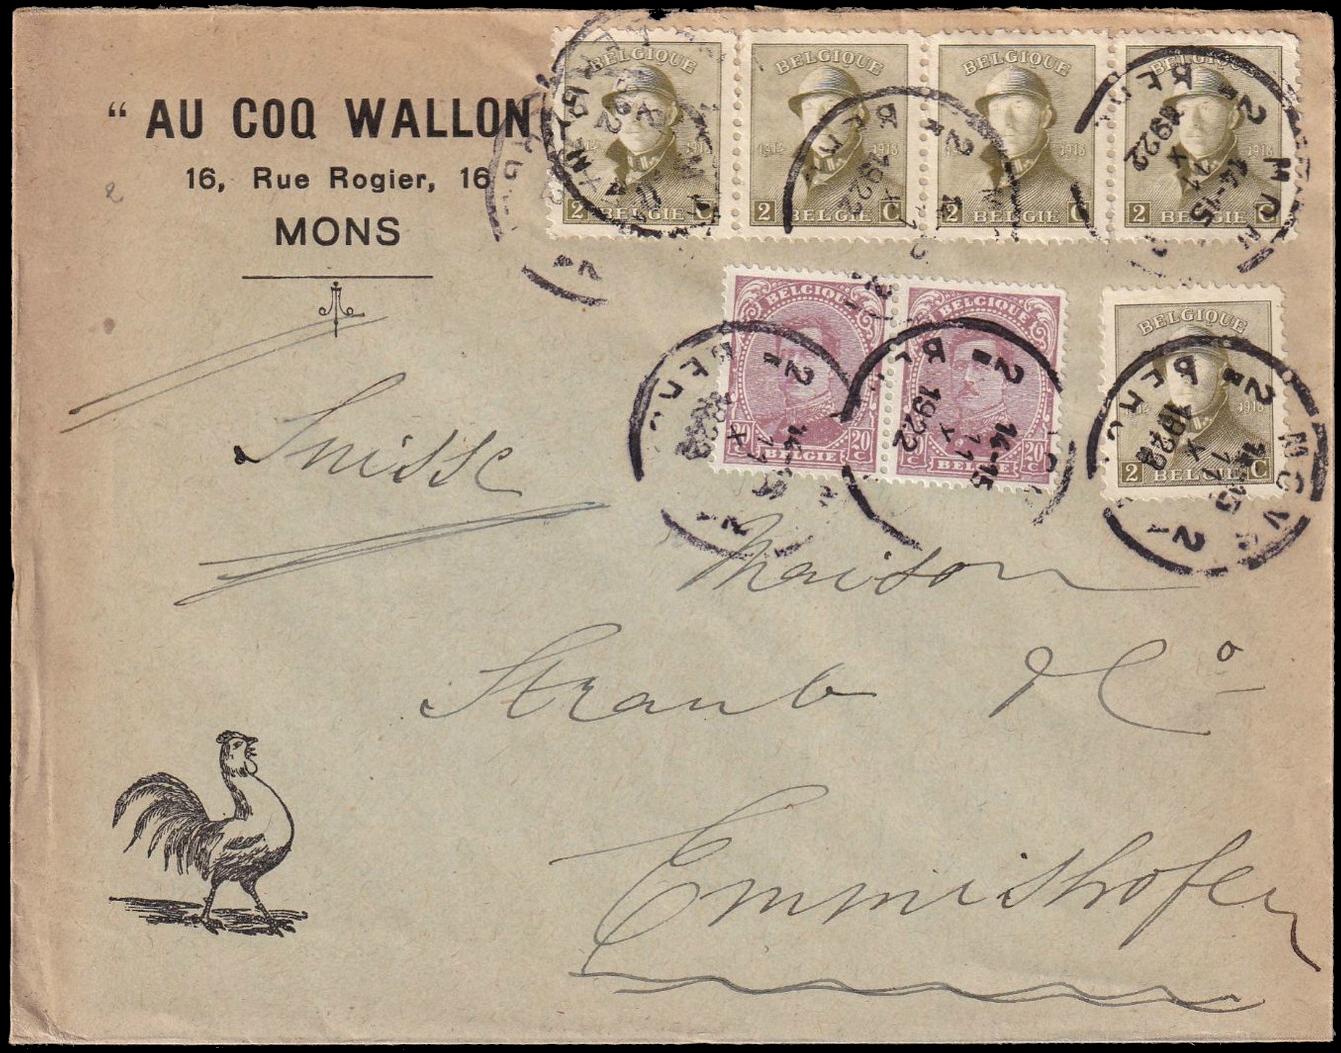 “ AU COQ WALLON
16, Rue Rogier, 16
MONS
BELGIQUE
1914 1918
2 BELGIE C
BELGIQUE
1914 1918
2 BELGIE C
BELGIQUE
2 BELGIE C
BELGIQUE
1918
2 BELGIE C
BELGIQUE
20 C BELGIE 20 C
BELGIQUE
BELGIE 20 C
BELGIQUE
1914 1918
2 BELGIE C
MONS 2 BERGEN 2
14-15
11
X
1922
Suisse
Maison
Straub & Co
Emmishofen